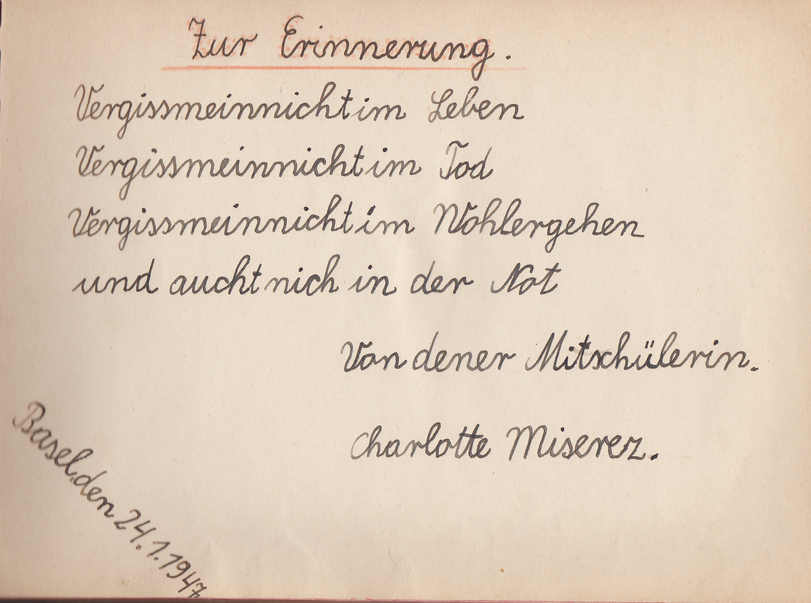 Zur Erinnerung.
Vergissmeinnicht im Leben
Vergissmeinnicht im Tod
Vergissmeinnicht im Wohlergehen
und aucht nich in der Not
Von dener Mitschülerin.
Charlotte Miserez.
Basel, den 24.1.1947